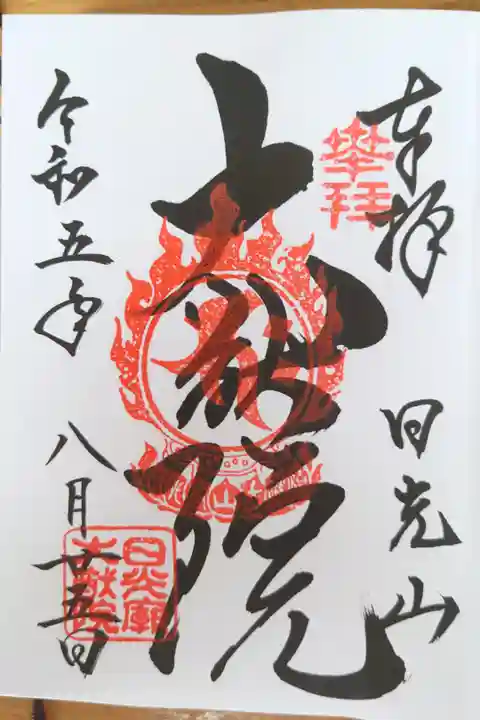 奉拝
日光山
大猷院
令和五年
八月廿五日
奉拝
日光廟
大猷院